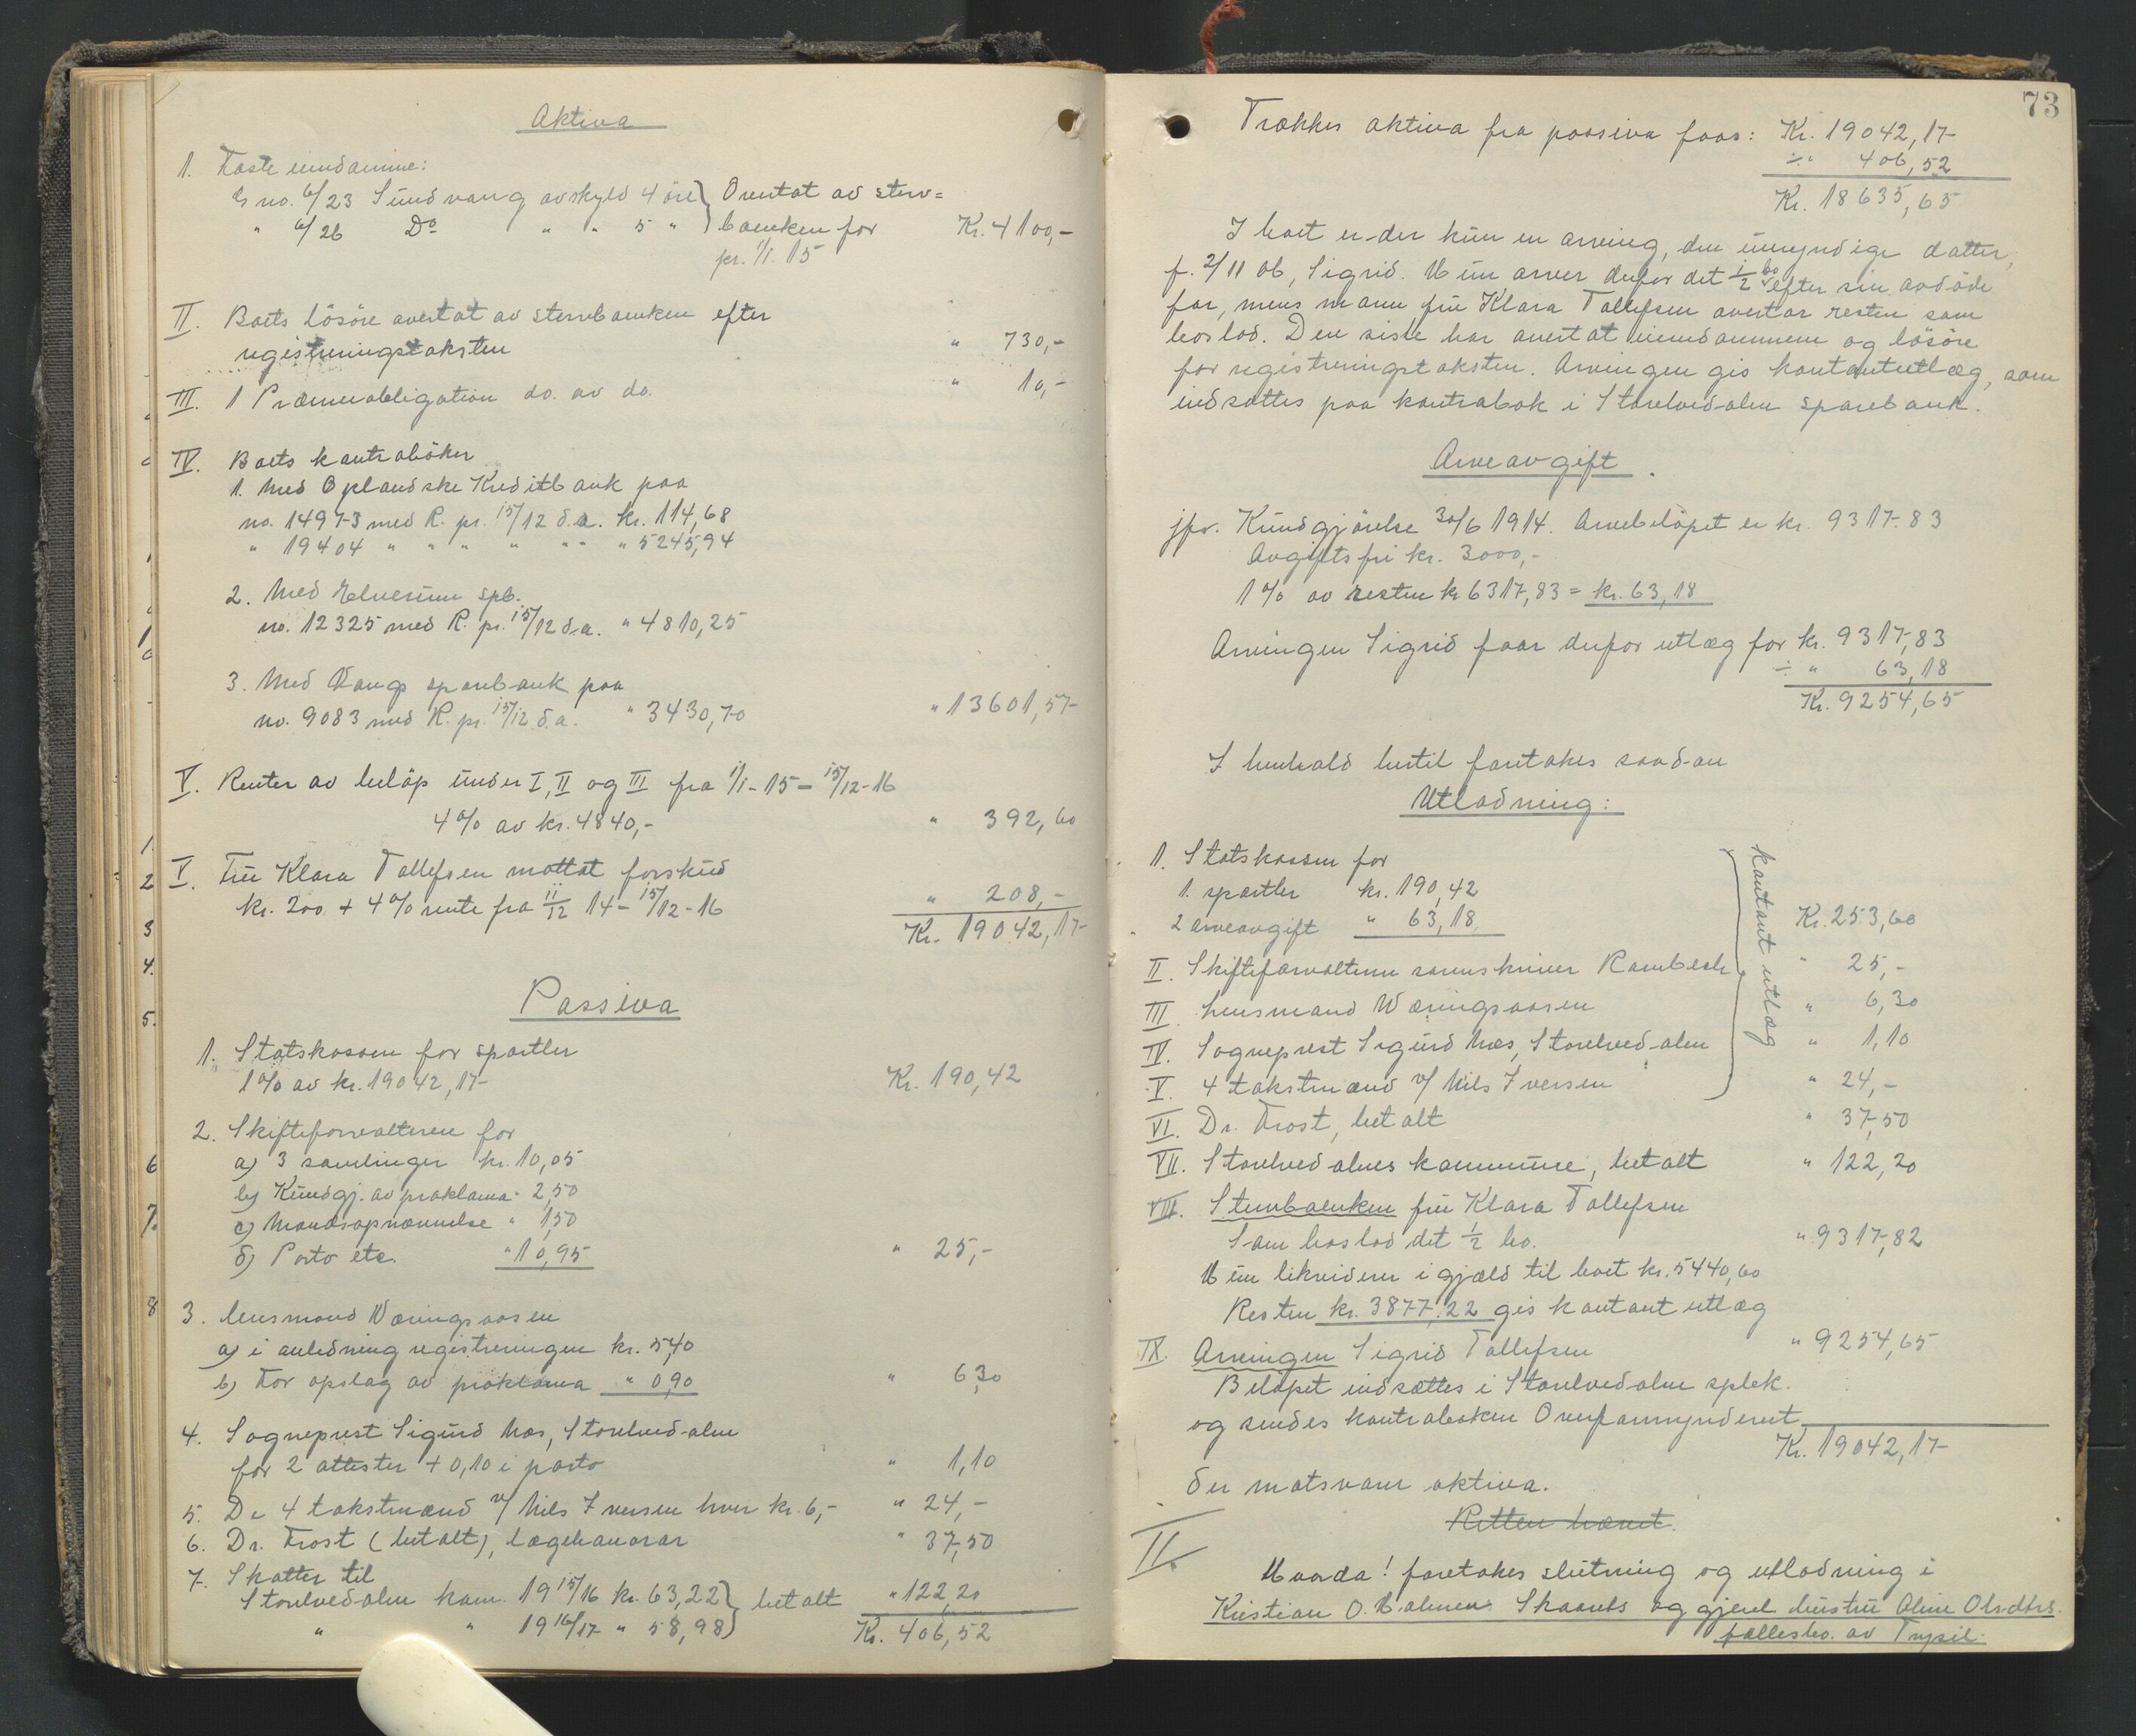 Aktiva
1. Faste eiendomme:
G no. 6/23 Sundvang avskyld 4 öre } Overtat av sterv=
" 6/26 Do " " 5 " } boenken for Kr. 4100,-
pr. 1/1 15
II. Boets lösöre overtat av stervboenken efter
registreringstaksten " 730,-
III. 1 Præmieobligation do. av do. " 10,-
IV. Boets kontraböker
1. Med Oplandske Kreditbank paa
no. 14973 med R. pr. 15/12 d.a. kr. 114,68
" 19404 " " " " " " " 5245,94
2. Med Elverum spb.
no. 12325 med R. pr. 15/12 d.a. " 4810,25
3. Med Vangs sparebank paa
no. 9083 med R. pr. 15/12 d.a. " 3430,70 " 13601,57
V. Renter av belöp under I, II og III fra 1/1-15 - 15/12-16
4% av kr. 4840,- " 392,60
V. Fru Klara Tollefsen mottat forskud
kr. 200 + 4% rente fra 11/12 14 - 15/12-16 " 208,-
Kr. 19042,17
Passiva
1. Statskassen for sportler
1% av kr. 19042,17 Kr. 190,42
2. Skifteforvalteren for
a) 3 samlinger kr. 10,05
b) Kundgj. av proklama " 2,50
c) Mandsopnævnelse " 1,50
d) Porto etc. " 10,95 " 25,-
3. Lensmand Væringsaasen
a) i anledning registreringen kr. 5,40
b) For opslag av proklama " 0,90 " 6,30
4. Sogneprest Sigurd Næs, Storelvedalen
for 2 attester + 0,10 i porto " 1,10
5. De 4 takstmænd v/ Nils Iversen hver kr. 6,- " 24,-
6. Dr. Frost (betalt), lægehonorar " 37,50
7. Skatter til
Storelvedalen kom. 1915/16 kr. 63,22 } betalt " 122,20
" " 1916/17 " 58,98 } Kr. 406,52
1.
2
3
4.
5.
6
7.
8
73
Trækkes aktiva fra passiva faaes: Kr. 19042,17
÷ " 406,52
Kr. 18635,65
I boet er der kun en arving, den umyndige datter,
f. 2/11 06, Sigrid. Hun arver derfor det 1/2 bo efter sin avdöde
far, mens mann fru Klara Tollefsen overtar resten som
boslod. Den siste har overtat eiendommen og lösöre
for registreringstaksten. Arvingen gis kontantutlæg, som
indsættes paa kontrabok i Storelvedalen sparebank.
Arveavgift.
jfr. Kundgjörelse 30/6 1914. Arvebelöpet er kr. 9317.83
Avgiftsfri kr. 3000,-
1% av resten kr 6317,83 = kr. 63,18
Arvingen Sigrid faar derfor utlæg for kr. 9317,83
÷ " 63,18
Kr. 9254,65
I henhold hertil foretakes saadan
Utlodning:
1. Statskassen for
1. sportler kr. 190,42
2 arveavgift " 63,18 Kr. 253,60
II. Skifteforvalteren sorenskriver Rambech " 25,-
III. Lensmand Væringsaasen " 6,30
IV. Sogneprest Sigurd Næs, Storelvedalen " 1,10
V. 4 takstmænd v/ Nils Iversen " 24,-
kontant utlæg
VI. Dr. Frost, betalt " 37,50
VII. Storelvedalens kommune, betalt " 122,20
VIII. Stervboenken fru Klara Tollefsen
Som boslod det 1/2 bo. " 9317,82
Hun likviderer i gjæld til boet kr. 5440,60
Resten kr. 3877,22 gis kontant utlæg
IX. Arvingen Sigrid Tollefsen " 9254,65
Belöpet indsættes i Storelvedalen spbk.
og sendes kontraboken Overformynderiet
Kr. 19042,17
der motsvarer aktiva.
Retten hævet.
II.
Hvorda! foretakes slutning og utlodning i
Kristian O. Holmen Skaarets og gjenl. hustru Oline Olsdtrs.
fællesbo. av Trysil.